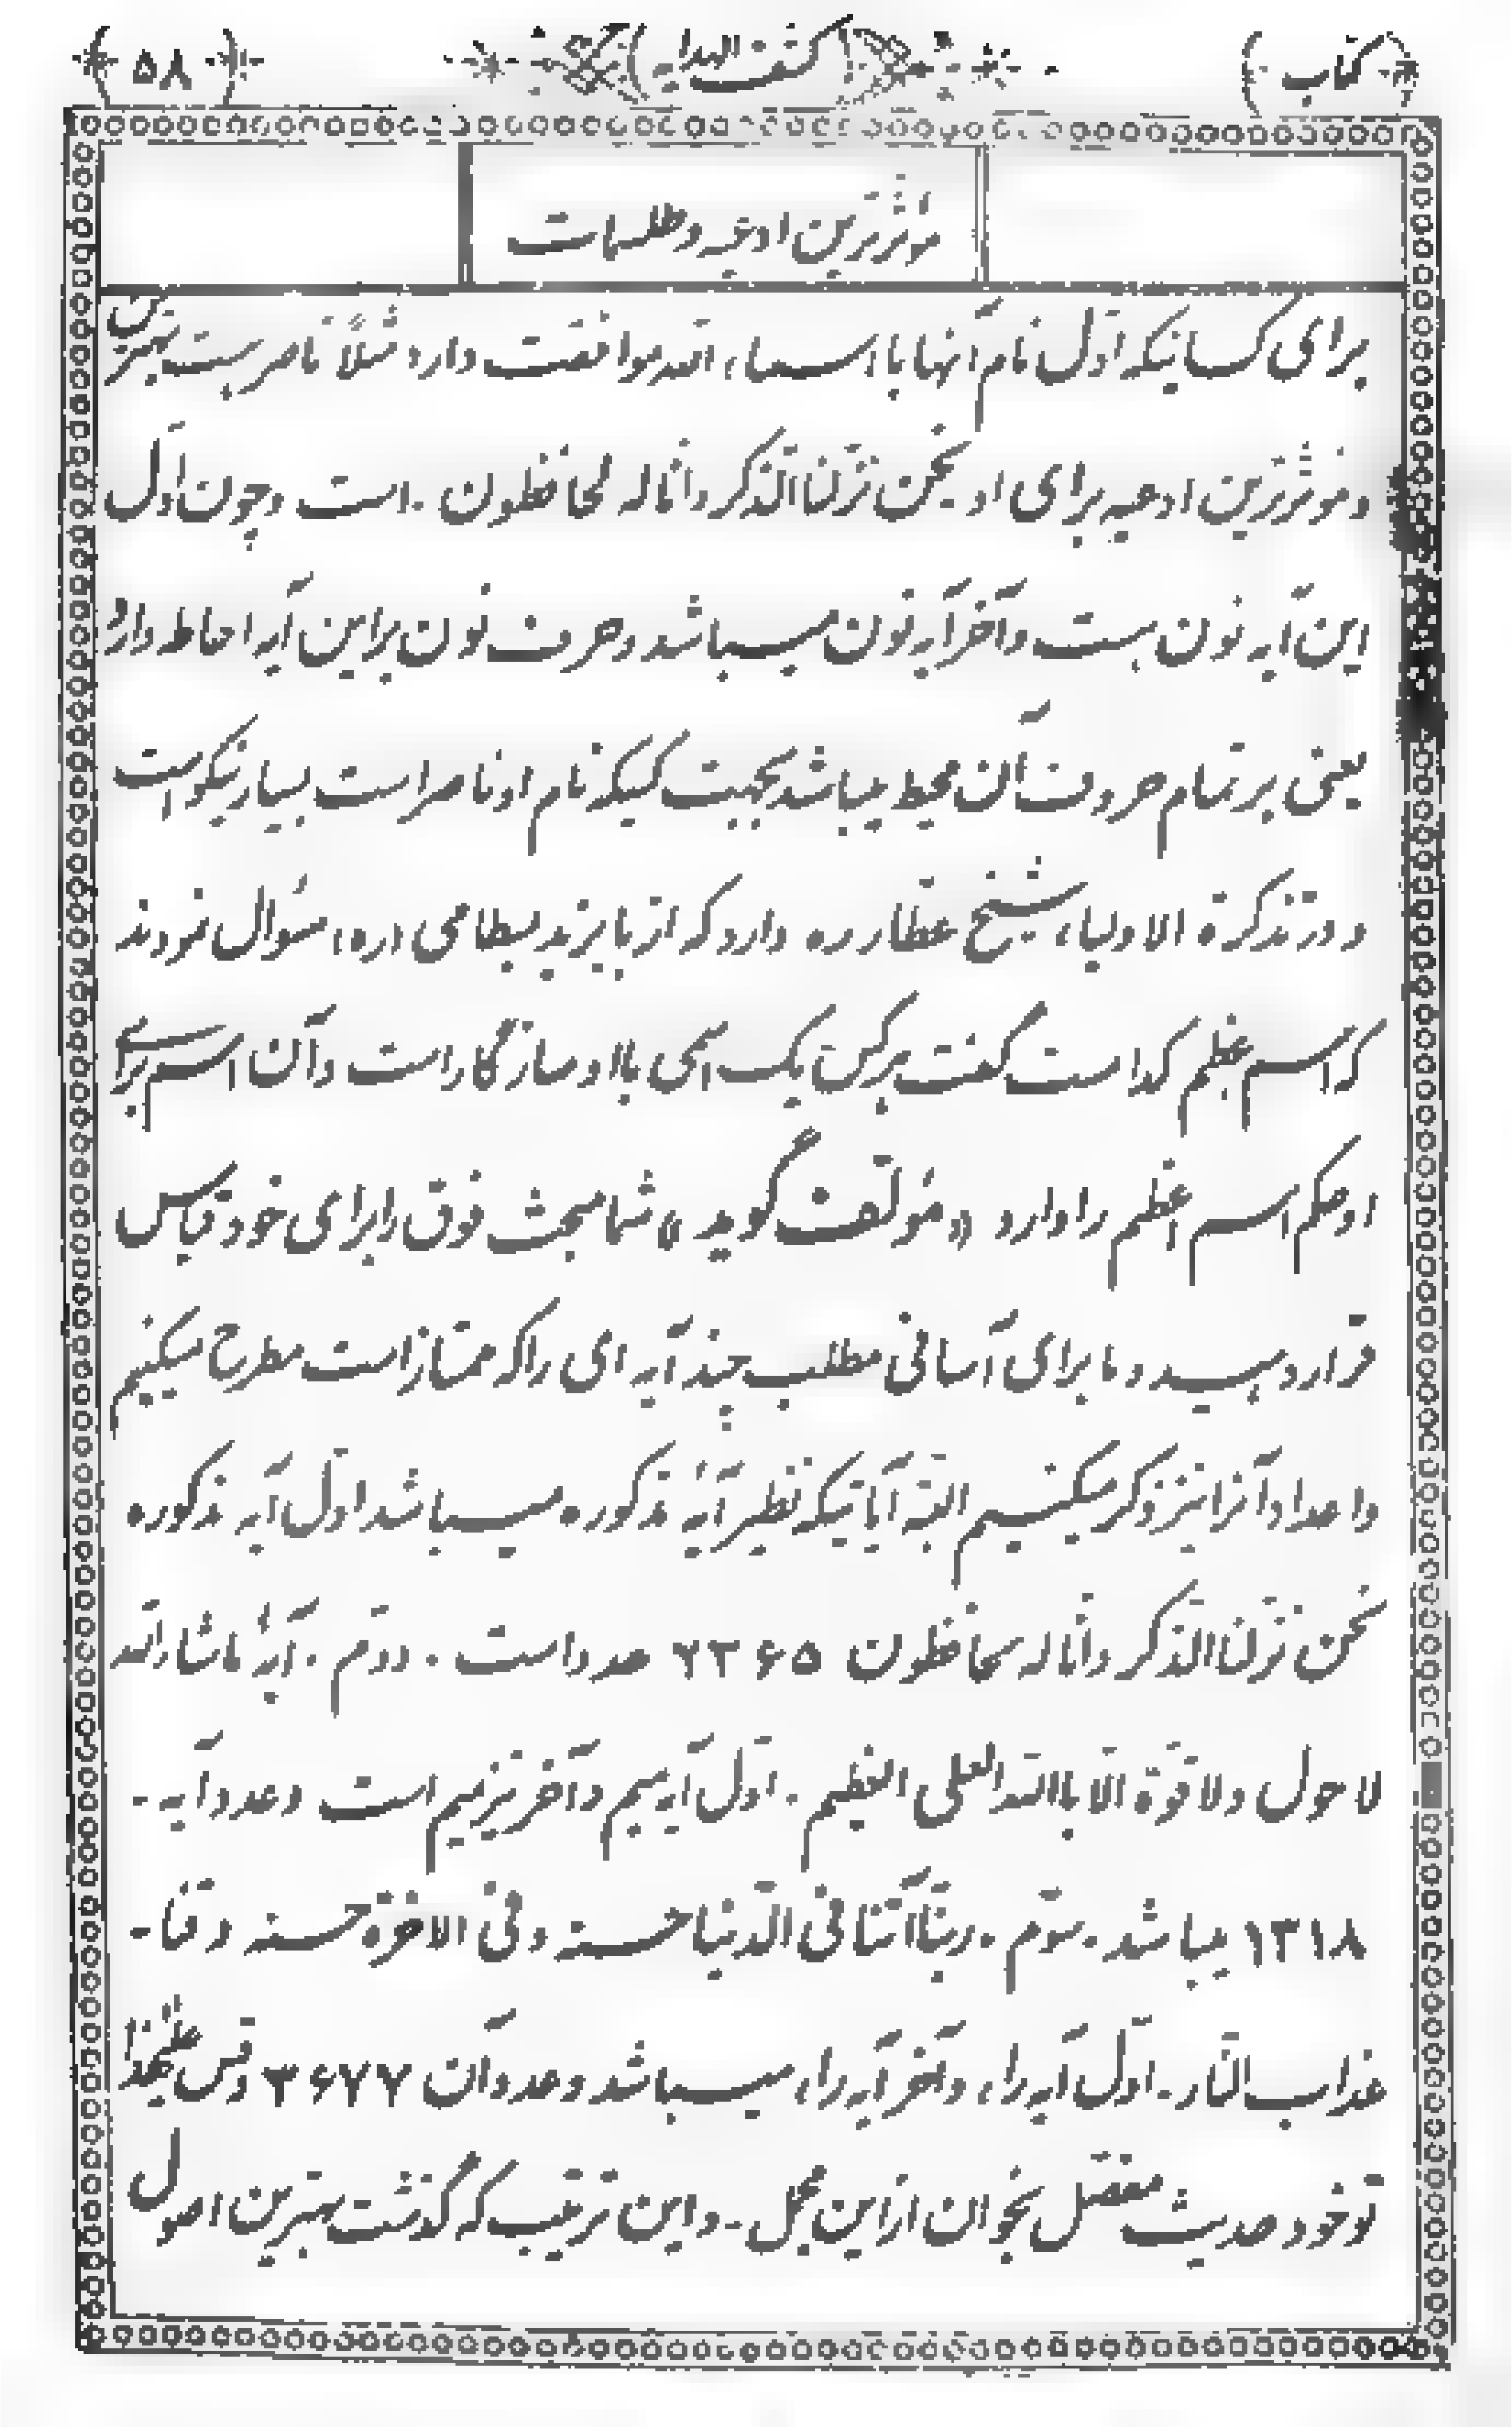 کتاب (کشف الهدایه) (۵۸)
مؤثرترین ادعیه وطلسمات
برای کسانیکه اول نام آنها با اسماء الله موافقت دارد مثلاً ناصر بست بهترین
وموثرترین ادعیه برای او نحن نزلنا الذکر وانا له لحافظون . است وچون اول
این آیه نون هست وآخر آیه نون میباشد وحرف نون براین آیه احاطه دارد
یعنی بر تمام حروف آن محیط میباشد بجهت کسیکه نام او ناصر است بسیار نیکو است
و در تذکرة الاولیاء شیخ عطار ره دارد که از بایزید بسطامی «ره» سئوال نمودند
که اسم عظم کدام است گفت هر کس یک اسمی با او سازگار است وآن اسم برای
او حکم اسم اعظم را دارد «مؤلف گوید» شما مبحث فوق را برای خود قیاس
قرار دهید وما برای آسانی مطلب چند آیه ای را که ممتاز است مطرح میکنیم
واعداد آنرا نیز ذکر میکنیم البته آیاتیکه نظیر آیهٔ مذکوره میباشد اول آیه مذکوره
نحن نزلنا الذکر وانا له لحافظون ۲۳۶۵ عدد است . دوم . آیهٔ ماشاءالله
لا حول ولا قوة الا باالله العلی العظیم . اول آیه میم وآخر نیز میم است وعدد آیه -
۱۳۱۸ میباشد . سوم . ربنا آتنا فی الدنیا حسنه وفی الاخرة حسنه وقنا -
عذاب النار - اول آیه راء وآخر آیه راء میباشد وعدد آن ۳۶۷۷ وقس علیهذا
تو خود حدیث مفصل بخوان از این مجمل - واین ترتیب که گذشت بهترین اصول